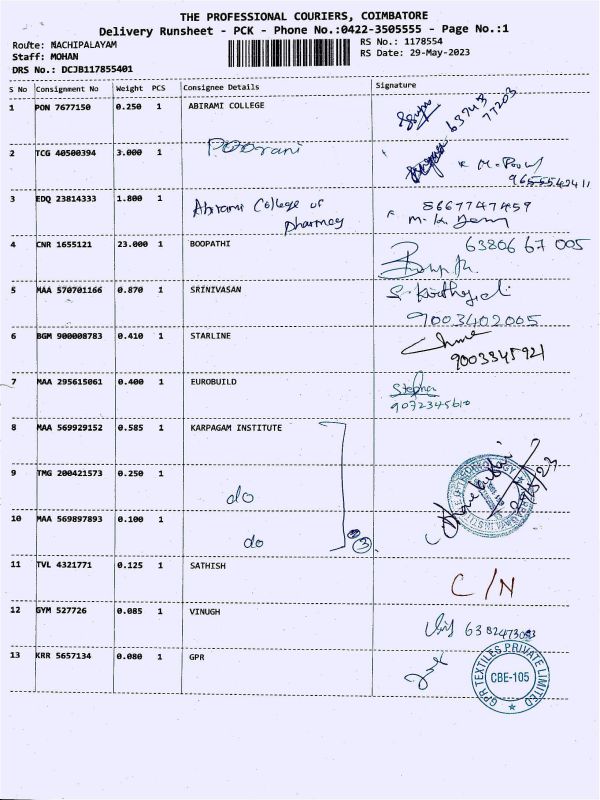 THE PROFESSIONAL COURIERS, COIMBATORE
Delivery Runsheet - PCK - Phone No.:0422-3505555 - Page No.:1
Route: NACHIPALAYAM
RS No.: 1178554
Staff: MOHAN
RS Date: 29-May-2023
DRS No.: DCJB117855401
S No Consignment No Weight PCS Consignee Details Signature
1 PON 7677150 0.250 1 ABIRAMI COLLEGE
63743
77203
2 TCG 40500394 3.000 1 Poorani
3 EDQ 23814333 1.800 1 Abirami College of
pharmacy
8667747459
4 CNR 1655121 23.000 1 BOOPATHI 63806 67 005
5 MAA 570701166 0.870 1 SRINIVASAN
9003402005
6 BGM 900008783 0.410 1 STARLINE
9003345921
7 MAA 295615061 0.400 1 EUROBUILD Stephen
9072345610
8 MAA 569929152 0.585 1 KARPAGAM INSTITUTE
9 TMG 200421573 0.250 1 do
10 MAA 569897893 0.100 1 do
3
11 TVL 4321771 0.125 1 SATHISH C/N
12 GYM 527726 0.085 1 VINUGH
13 KRR 5657134 0.080 1 GPR
GPR TEXTILES PRIVATE LIMITED
CBE-105